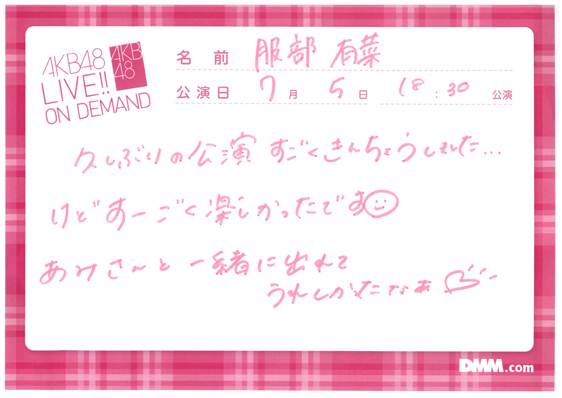 AKB48
LIVE!!
ON DEMAND
AKB
48
名前 服部 有菜
公演日 7月5日 18:30 公演
久しぶりの公演 すごくきんちょうしました...
けどすーごく楽しかったです
あみさんと一緒に出れて
うれしかったなぁ
DMM.com